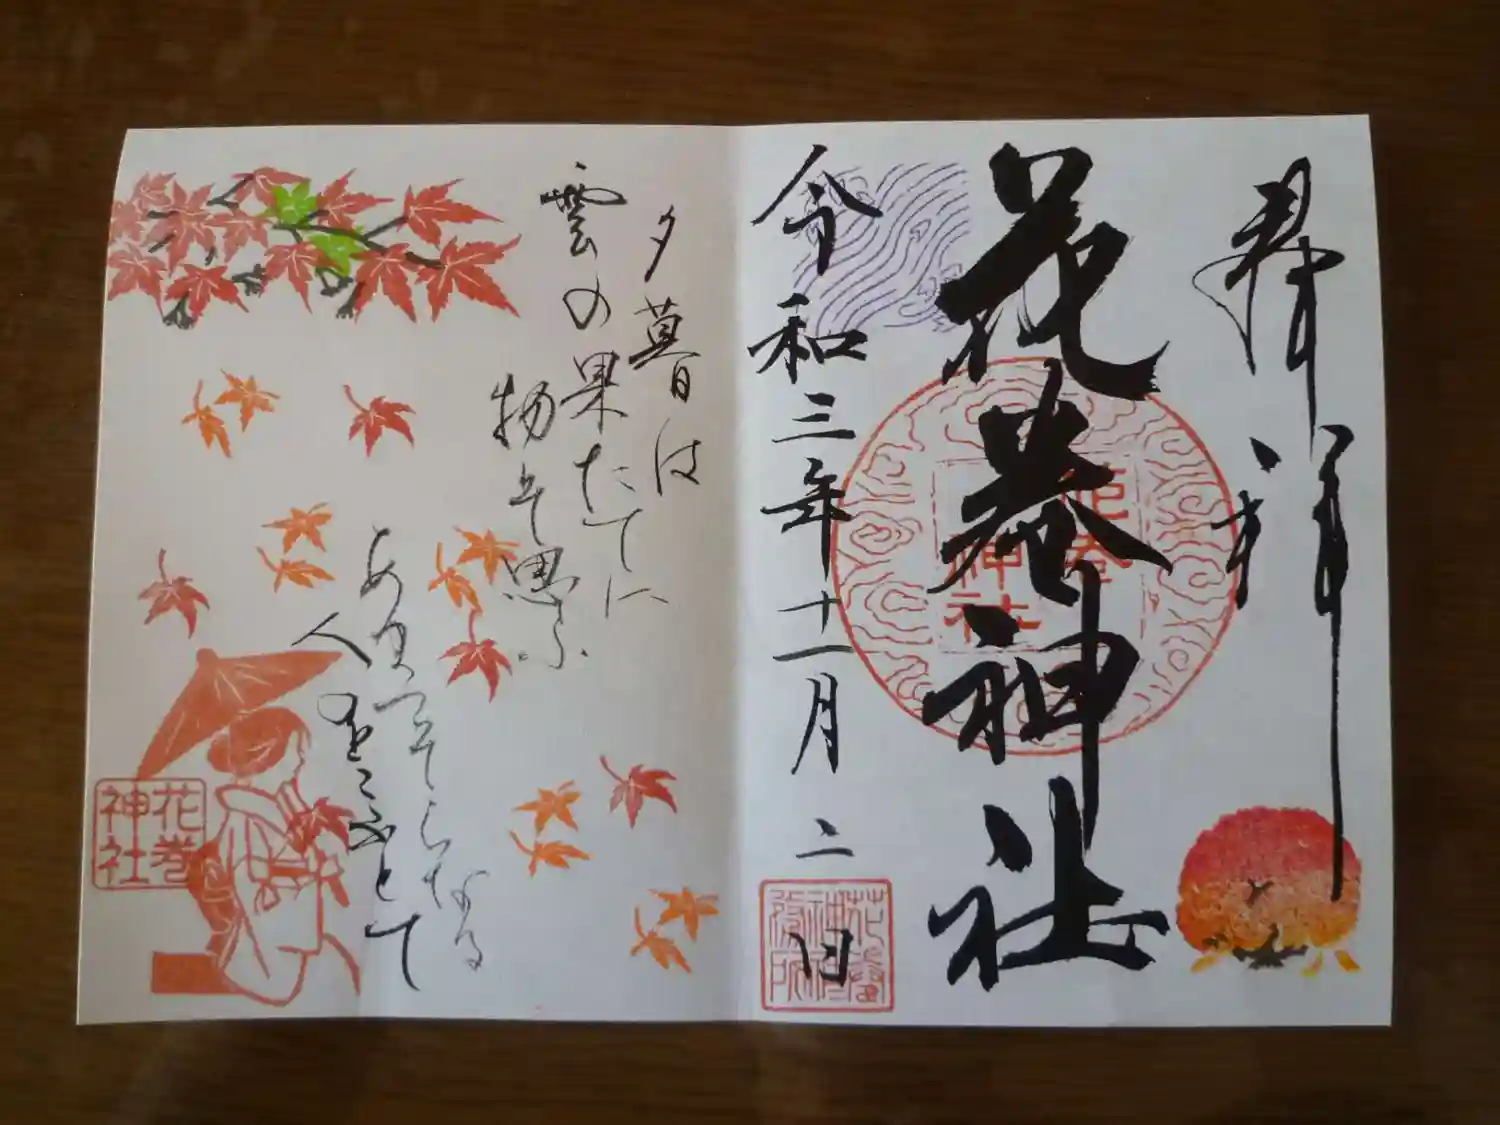 奉拝
花巻神社
令和三年十一月二日
花巻
神社
夕暮は
雲の果たてに
物そ思ふ
あまつそらなる
人をこふとて
花巻
神社